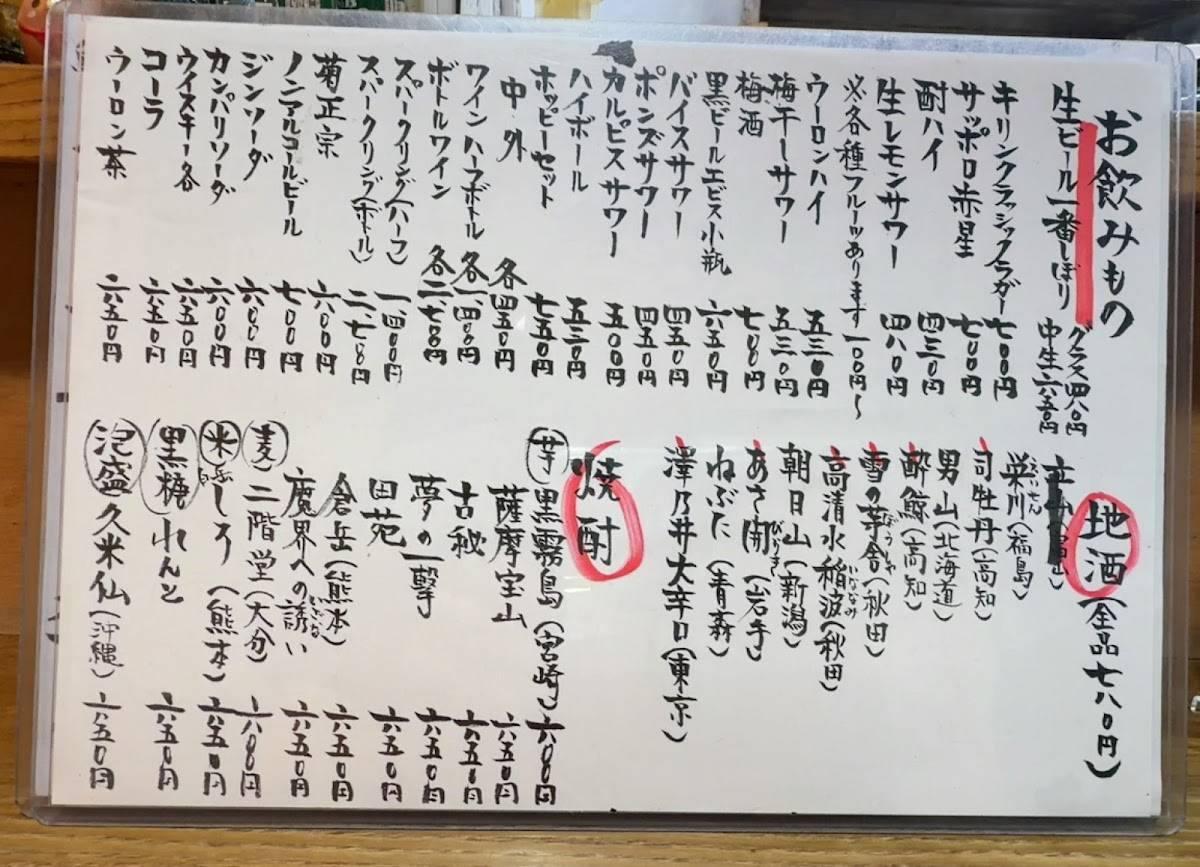 お飲みもの
生ビール一番しぼり グラス四八〇円
中生六五〇円
キリンクラッシックラガー 七〇〇円
サッポロ赤星 七〇〇円
酎ハイ 四三〇円
生レモンサワー 四八〇円
※各種フルーツあります 一〇〇円〜
ウーロンハイ 五三〇円
梅干ーサワー 五三〇円
梅酒 七〇〇円
黒ビールエビス小瓶 六五〇円
バイスサワー 四五〇円
ポンズサワー 四五〇円
カルピスサワー 五〇〇円
ハイボール 五三〇円
ホッピーセット 七五〇円
中・外 各四五〇円
ワインハーフボトル 各一、四〇〇円
ボトルワイン 各二、七〇〇円
スパークリング(ハーフ) 一、四〇〇円
スパークリング(ボトル) 二、七〇〇円
菊正宗 六〇〇円
ノンアルコールビール 七〇〇円
ジンソーダ 六〇〇円
カンパリソーダ 六〇〇円
ウイスキー各 六五〇円
コーラ 六五〇円
ウーロン茶 六五〇円
地酒(全品七八〇円)
栄川(福島)
えいせん
司牡丹(高知)
男山(北海道)
酔鯨(高知)
雪の茅舎(秋田)
ぼうしゃ
高清水稲波(秋田)
いななみ
朝日山(新潟)
あさ開(岩手)
びらき
ねぶた(青森)
澤乃井大辛口(東京)
焼酎
芋 黒霧島(宮崎) 六〇〇円
薩摩宝山 六五〇円
古秘 六五〇円
夢の一撃 六五〇円
田苑 六五〇円
倉岳(熊本) 六五〇円
魔界への誘い 六五〇円
いざない
麦 二階堂(大分) 六〇〇円
米 しろ(熊本) 六五〇円
黒糖 れんと 六五〇円
泡盛 久米仙(沖縄) 六五〇円